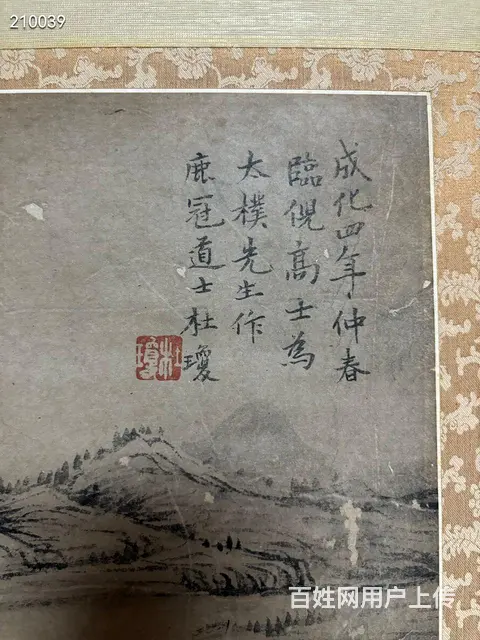 210039
成化四年仲春
臨倪高士為
太樸先生作
鹿冠道士杜瓊
杜瓊
百姓网用户上传